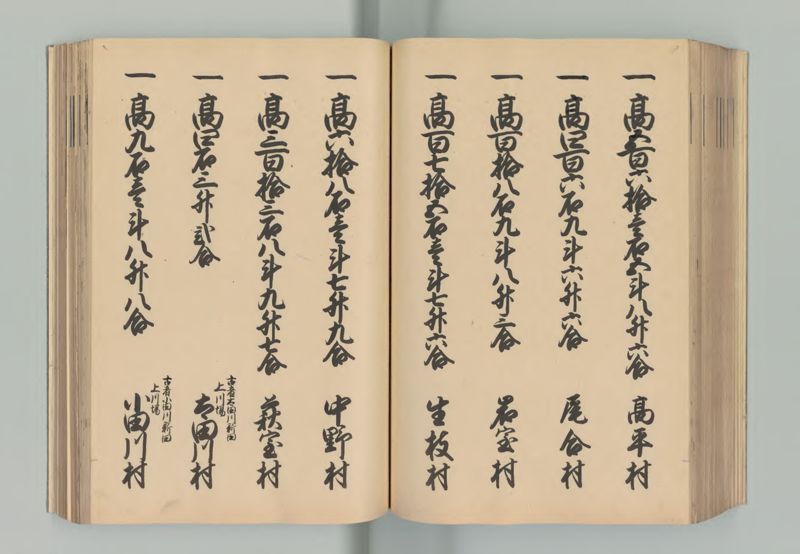 一高五百六拾壱石五斗八升六合 高平村
一高四百六石九斗六升六合 尾合村
一高百拾八石九斗八升三合 岩室村
一高百七拾五石壱斗七升六合 生枝村
一高六拾八石壱斗七升九合 中野村
一高三百拾三石八斗九升七合 萩室村
一高四石三升弐合 古者太田川新田 上川場 太田川村
一高九石壱斗八升八合 古者小田川新田 上川場 小田川村